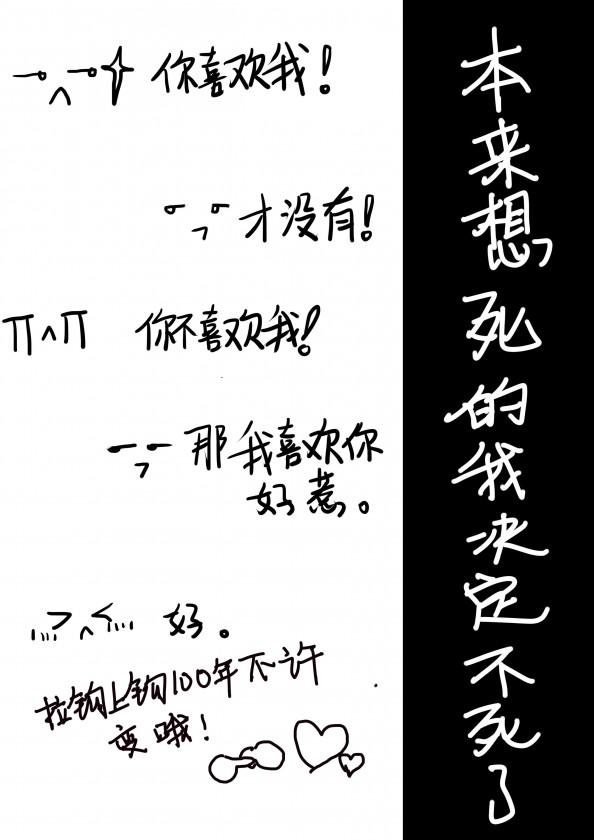 你喜欢我！
才没有！
你不喜欢我！
那我喜欢你
好惹。
好。
拉钩上钩100年不许
变哦！
本来想死的我决定不死了